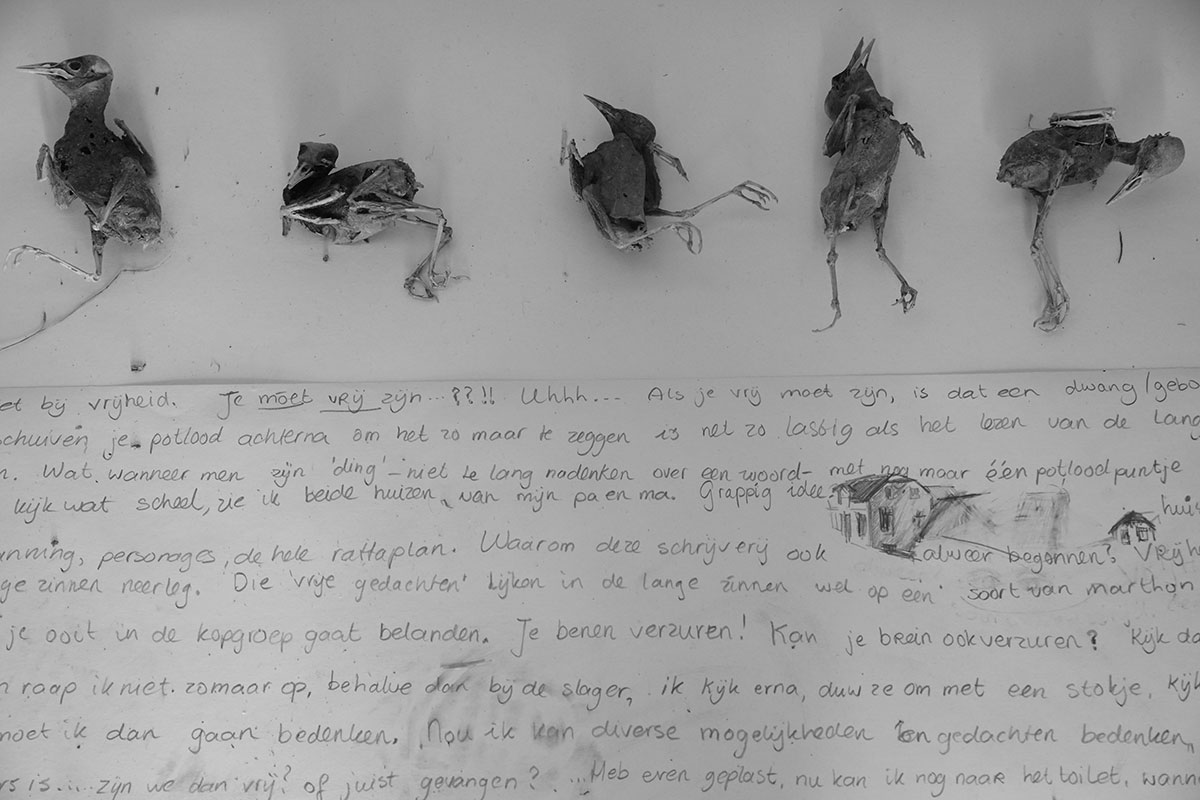 et bij vrijheid. Je moet vrij zijn...??!! Uhhh... Als je vrij moet zijn, is dat een dwang/gebo
schuiven, je potlood achterna om het zo maar te zeggen is net zo lastig als het lezen van de lang
n. Wat wanneer men zijn 'ding' - niet te lang nadenken over een woord - met nog maar één potloodpuntje
kijk wat scheel, zie ik beide huizen van mijn pa en ma. Grappig idee. huis
nning, personages, de hele rattaplan. Waarom deze schrijverij ook alweer begonnen? Vrijh
ge zinnen neerleg. Die 'vrije gedachten' lijken in de lange zinnen wel op een soort van marthon
je ooit in de kopgroep gaat belanden. Je benen verzuren! Kan je brein ook verzuren? Kijk da
n raap ik niet zomaar op, behalve dan bij de slager, ik kijk erna, duw ze om met een stokje, kijk
moet ik dan gaan bedenken. Nou ik kan diverse mogelijkheden en gedachten bedenken,
rs is.... zijn we dan vrij? of juist gevangen? ...Heb even geplast, nu kan ik nog naar het toilet, wann